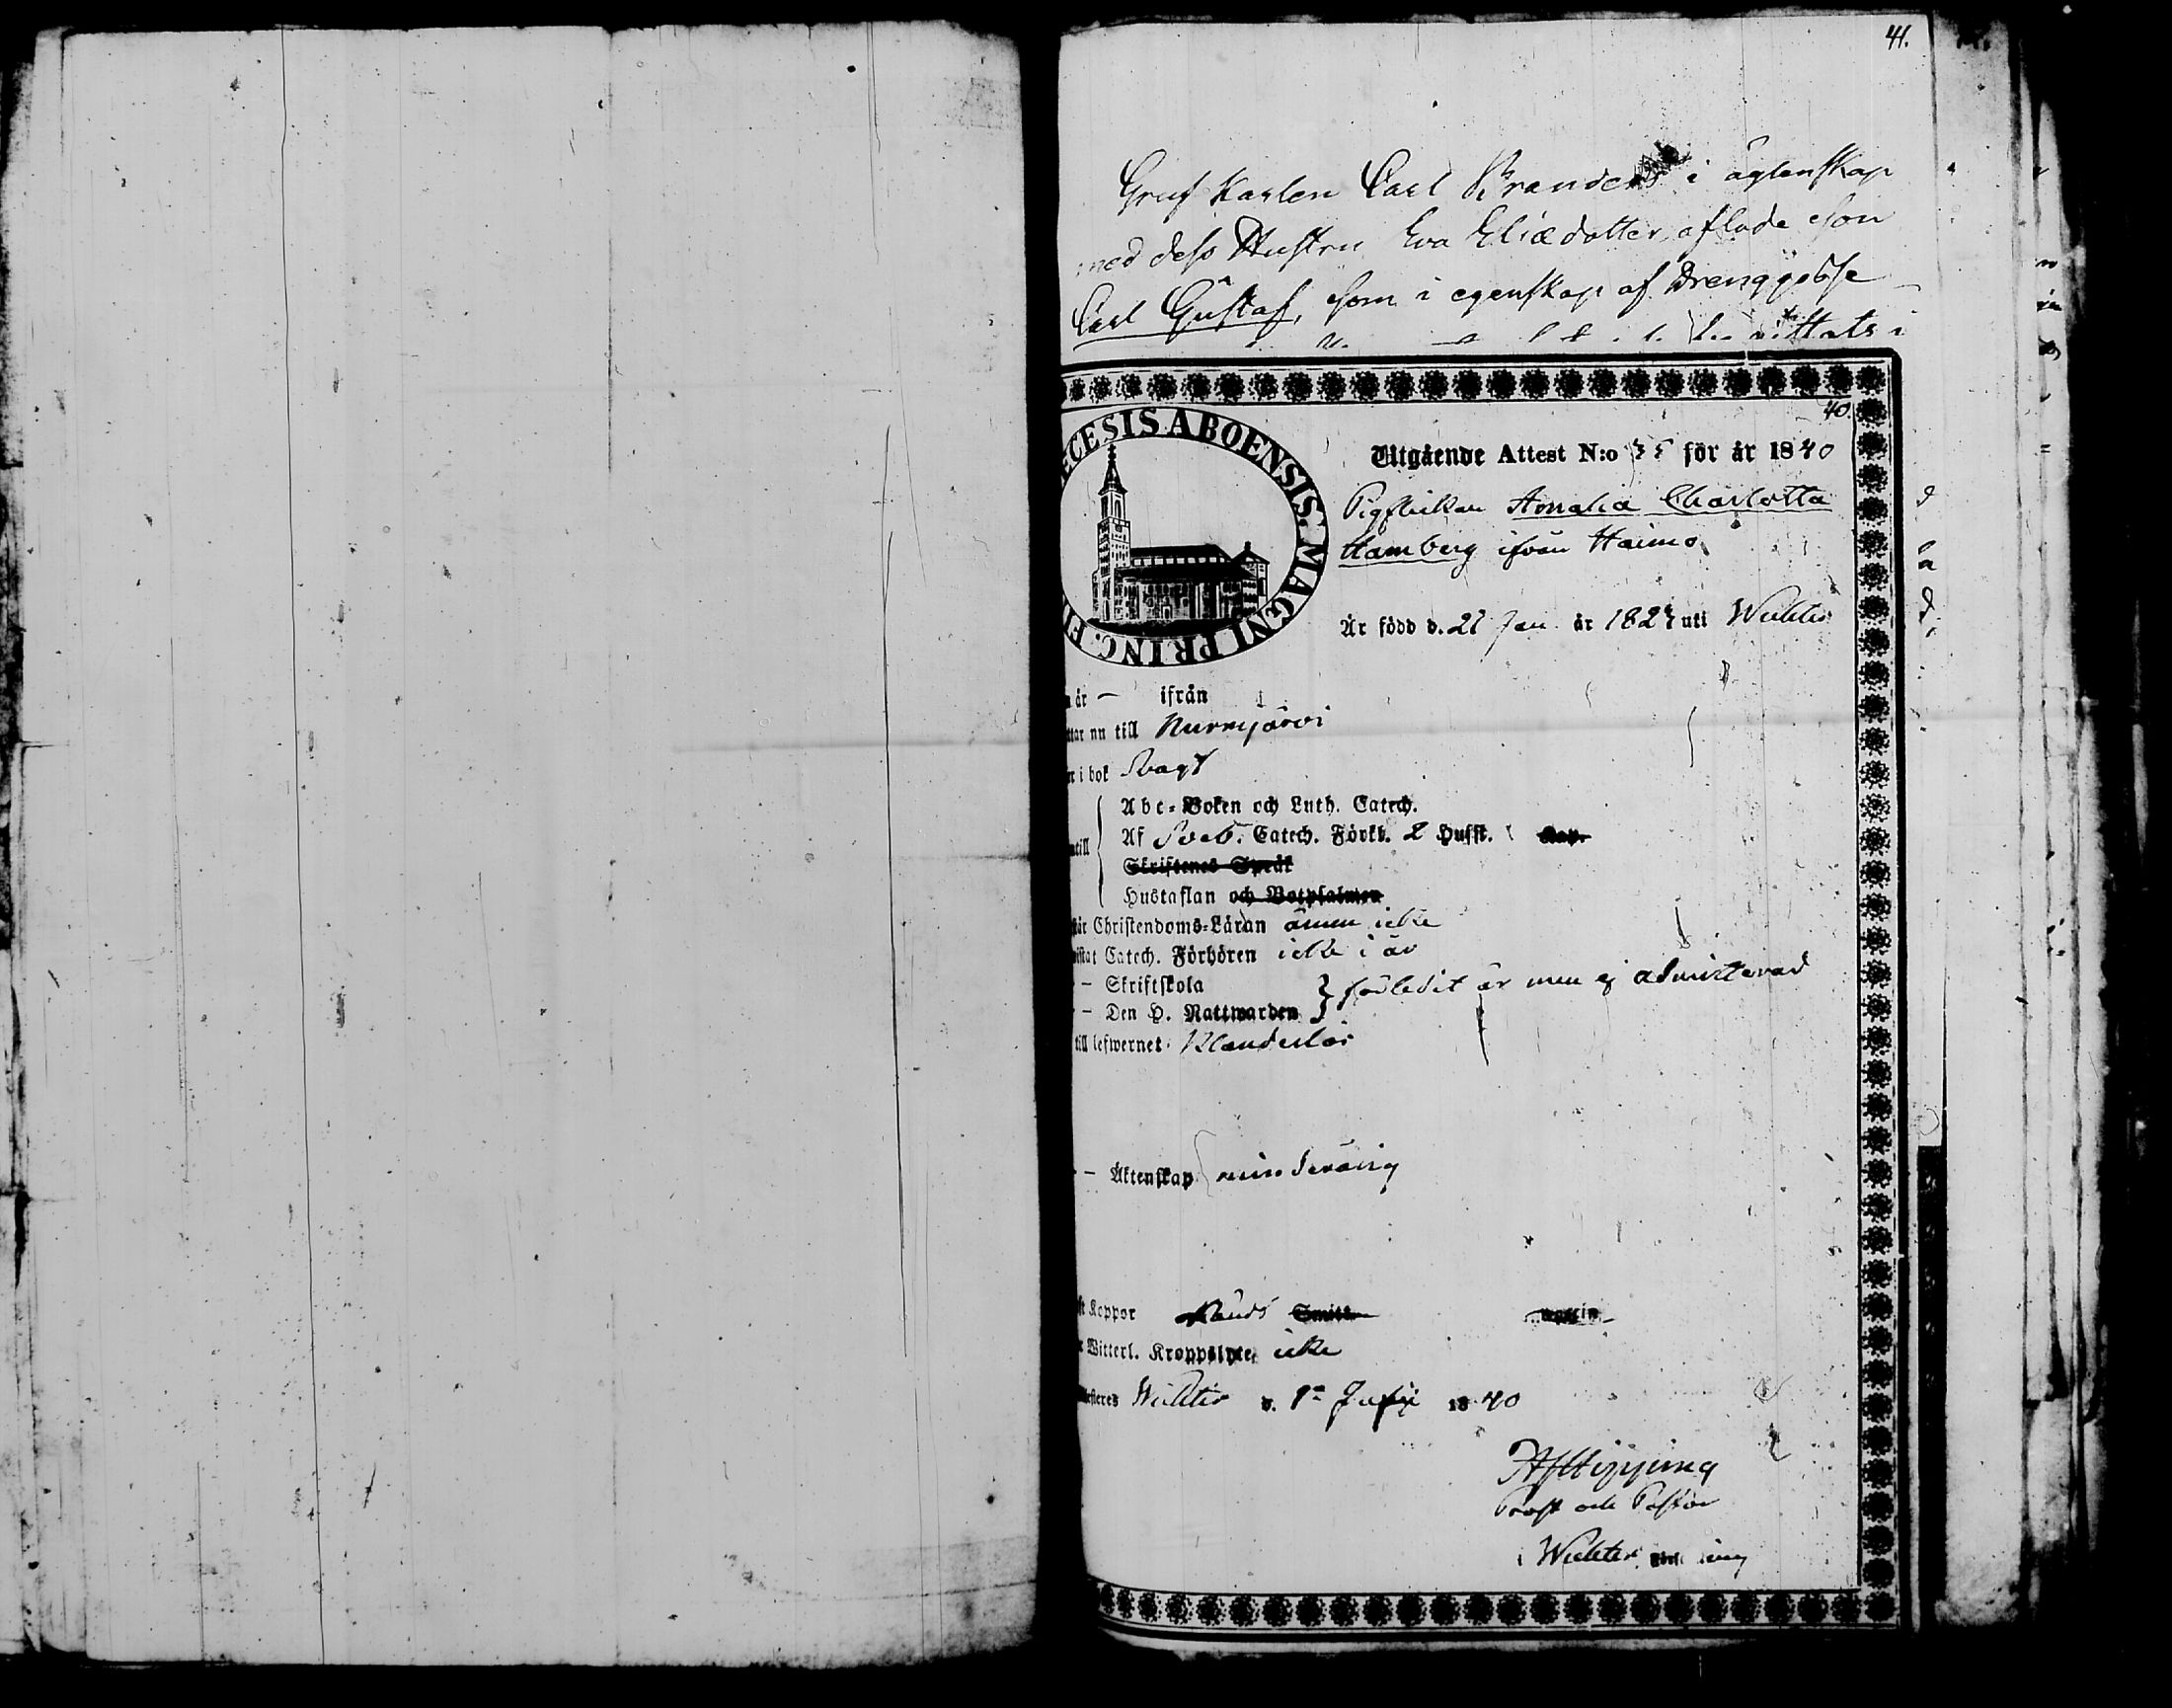 41.
Gruf Karlen Carl Brander i ägtenskap
med dess Hustru Eva Eliædotter aflade Son
Carl Gustaf, som i egenskap af Drenggosse
flyttats i
40.
CESIS ABOENSIS. MAGNI PRINC. FI
Utgående Attest N:o 35 för år 1840
Pigflickan Amalia Charlotta
Hamberg ifrån Haimo
Är född d. 27 Jan. år 1823 uti Wichtis
år — ifrån
ttar nu till Nurmijärvi
r i bok Svagt
Abc-Boken och Luth. Catech.
ntill Af Sveb. Catech. Förkl. 2 Hufst. Kap.
Skriftenes Språk
Hustaflan och Botpsalmen
står Christendoms-Läran ännu icke
vistat Catech. Förhören icke i år
— Skriftskola
— Den H. Nattwarden } förledit år men ej admitterad
till lefwernet Klanderlös
— Äktenskap minderårig
ft Koppor
r Witterl. Kroppslyte icke
Attesteres Wichtis d. 1 1840
Hipping
Prost och Pastor
i Wichtis